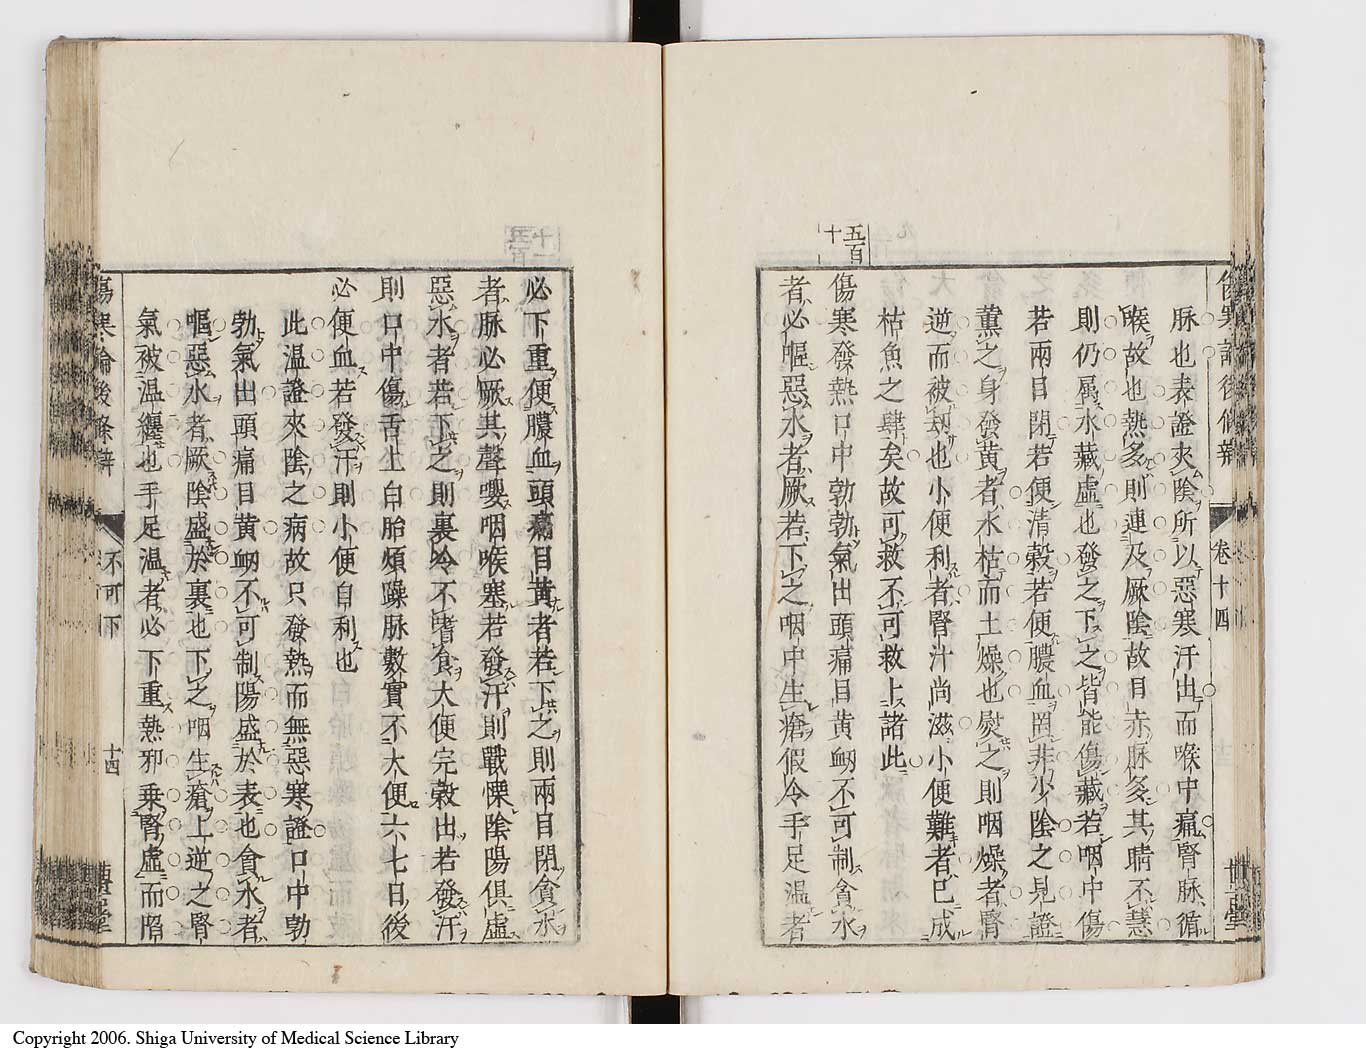 傷寒論後條辨
卷十四
脉也表證夾陰所以惡寒汗出而喉中痛腎脉循
喉故也熱多則連及厥陰故目赤脉多其睛不慧
則仍属水藏虛也發之下之皆能傷藏若咽中傷
若兩目閉若便清穀若便膿血罔非少陰之見證
薰之身發黄者水枯而土燥也熨之則咽燥者腎
逆而被刼也小便利者腎汁尚滋小便難者已成
枯魚之肆矣故可救不可救上諸此
五百十
傷寒發熱口中勃勃氣出頭痛目黄衂不可制貪水
者必嘔惡水者厥若下之咽中生瘡假令手足温者
必下重便膿血頭痛目黄者若下之則兩目閉貪水
者脉必厥其聲嚶咽喉塞若發汗則戰慄陰陽俱虛
惡水者若下之則裏冷不嗜食大便完榖出若發汗
則口中傷舌上白胎煩躁脉數實不大便六七日後
必便血若發汗則小便自利也
此温證夾陰之病故只發熱而無惡寒證口中勃
勃氣出頭痛目黄衂不可制陽盛於表也貪水者
嘔惡水者厥陰盛於裏也下之咽生瘡上逆之腎
氣被温纏也手足温者必下重熱邪乘腎虛而陷
傷寒論後條辨
不可下
十四